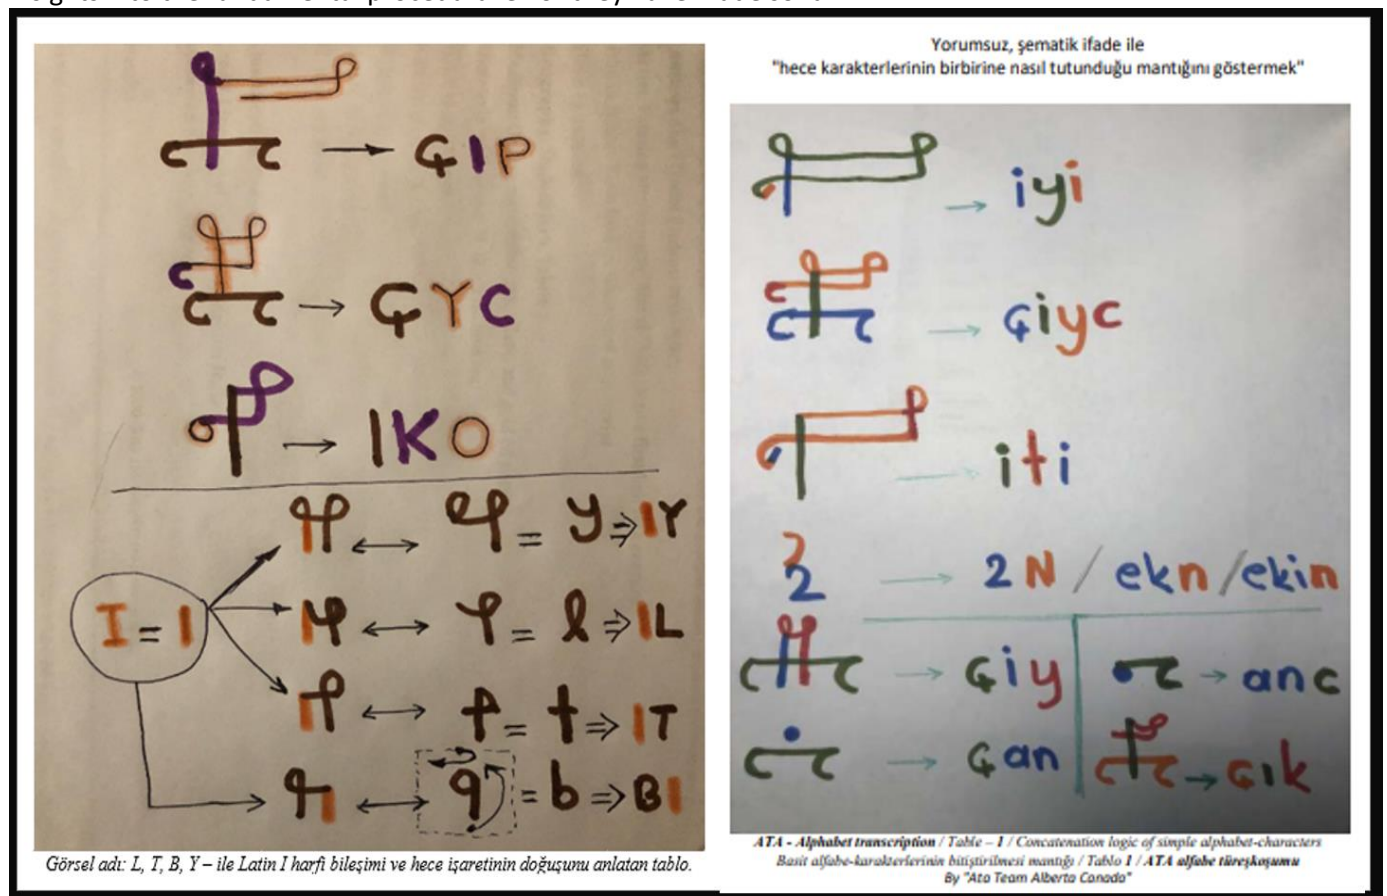 ÇIP
ÇYC
IKO
y ⇒ IY
I = I
= l ⇒ IL
= t ⇒ IT
= b ⇒ BI
Görsel adı: L, T, B, Y – ile Latin I harfi bileşimi ve hece işaretinin doğuşunu anlatan tablo.
Yorumsuz, şematik ifade ile
"hece karakterlerinin birbirine nasıl tutunduğu mantığını göstermek"
iyi
çiyc
iti
2N / ekn / ekin
çiy
anc
çan
çık
ATA - Alphabet transcription / Table – 1 / Concatenation logic of simple alphabet-characters
Basit alfabe-karakterlerinin bitiştirilmesi mantığı / Tablo 1 / ATA alfabe türeşkoşumu
By "Ata Team Alberta Canada"